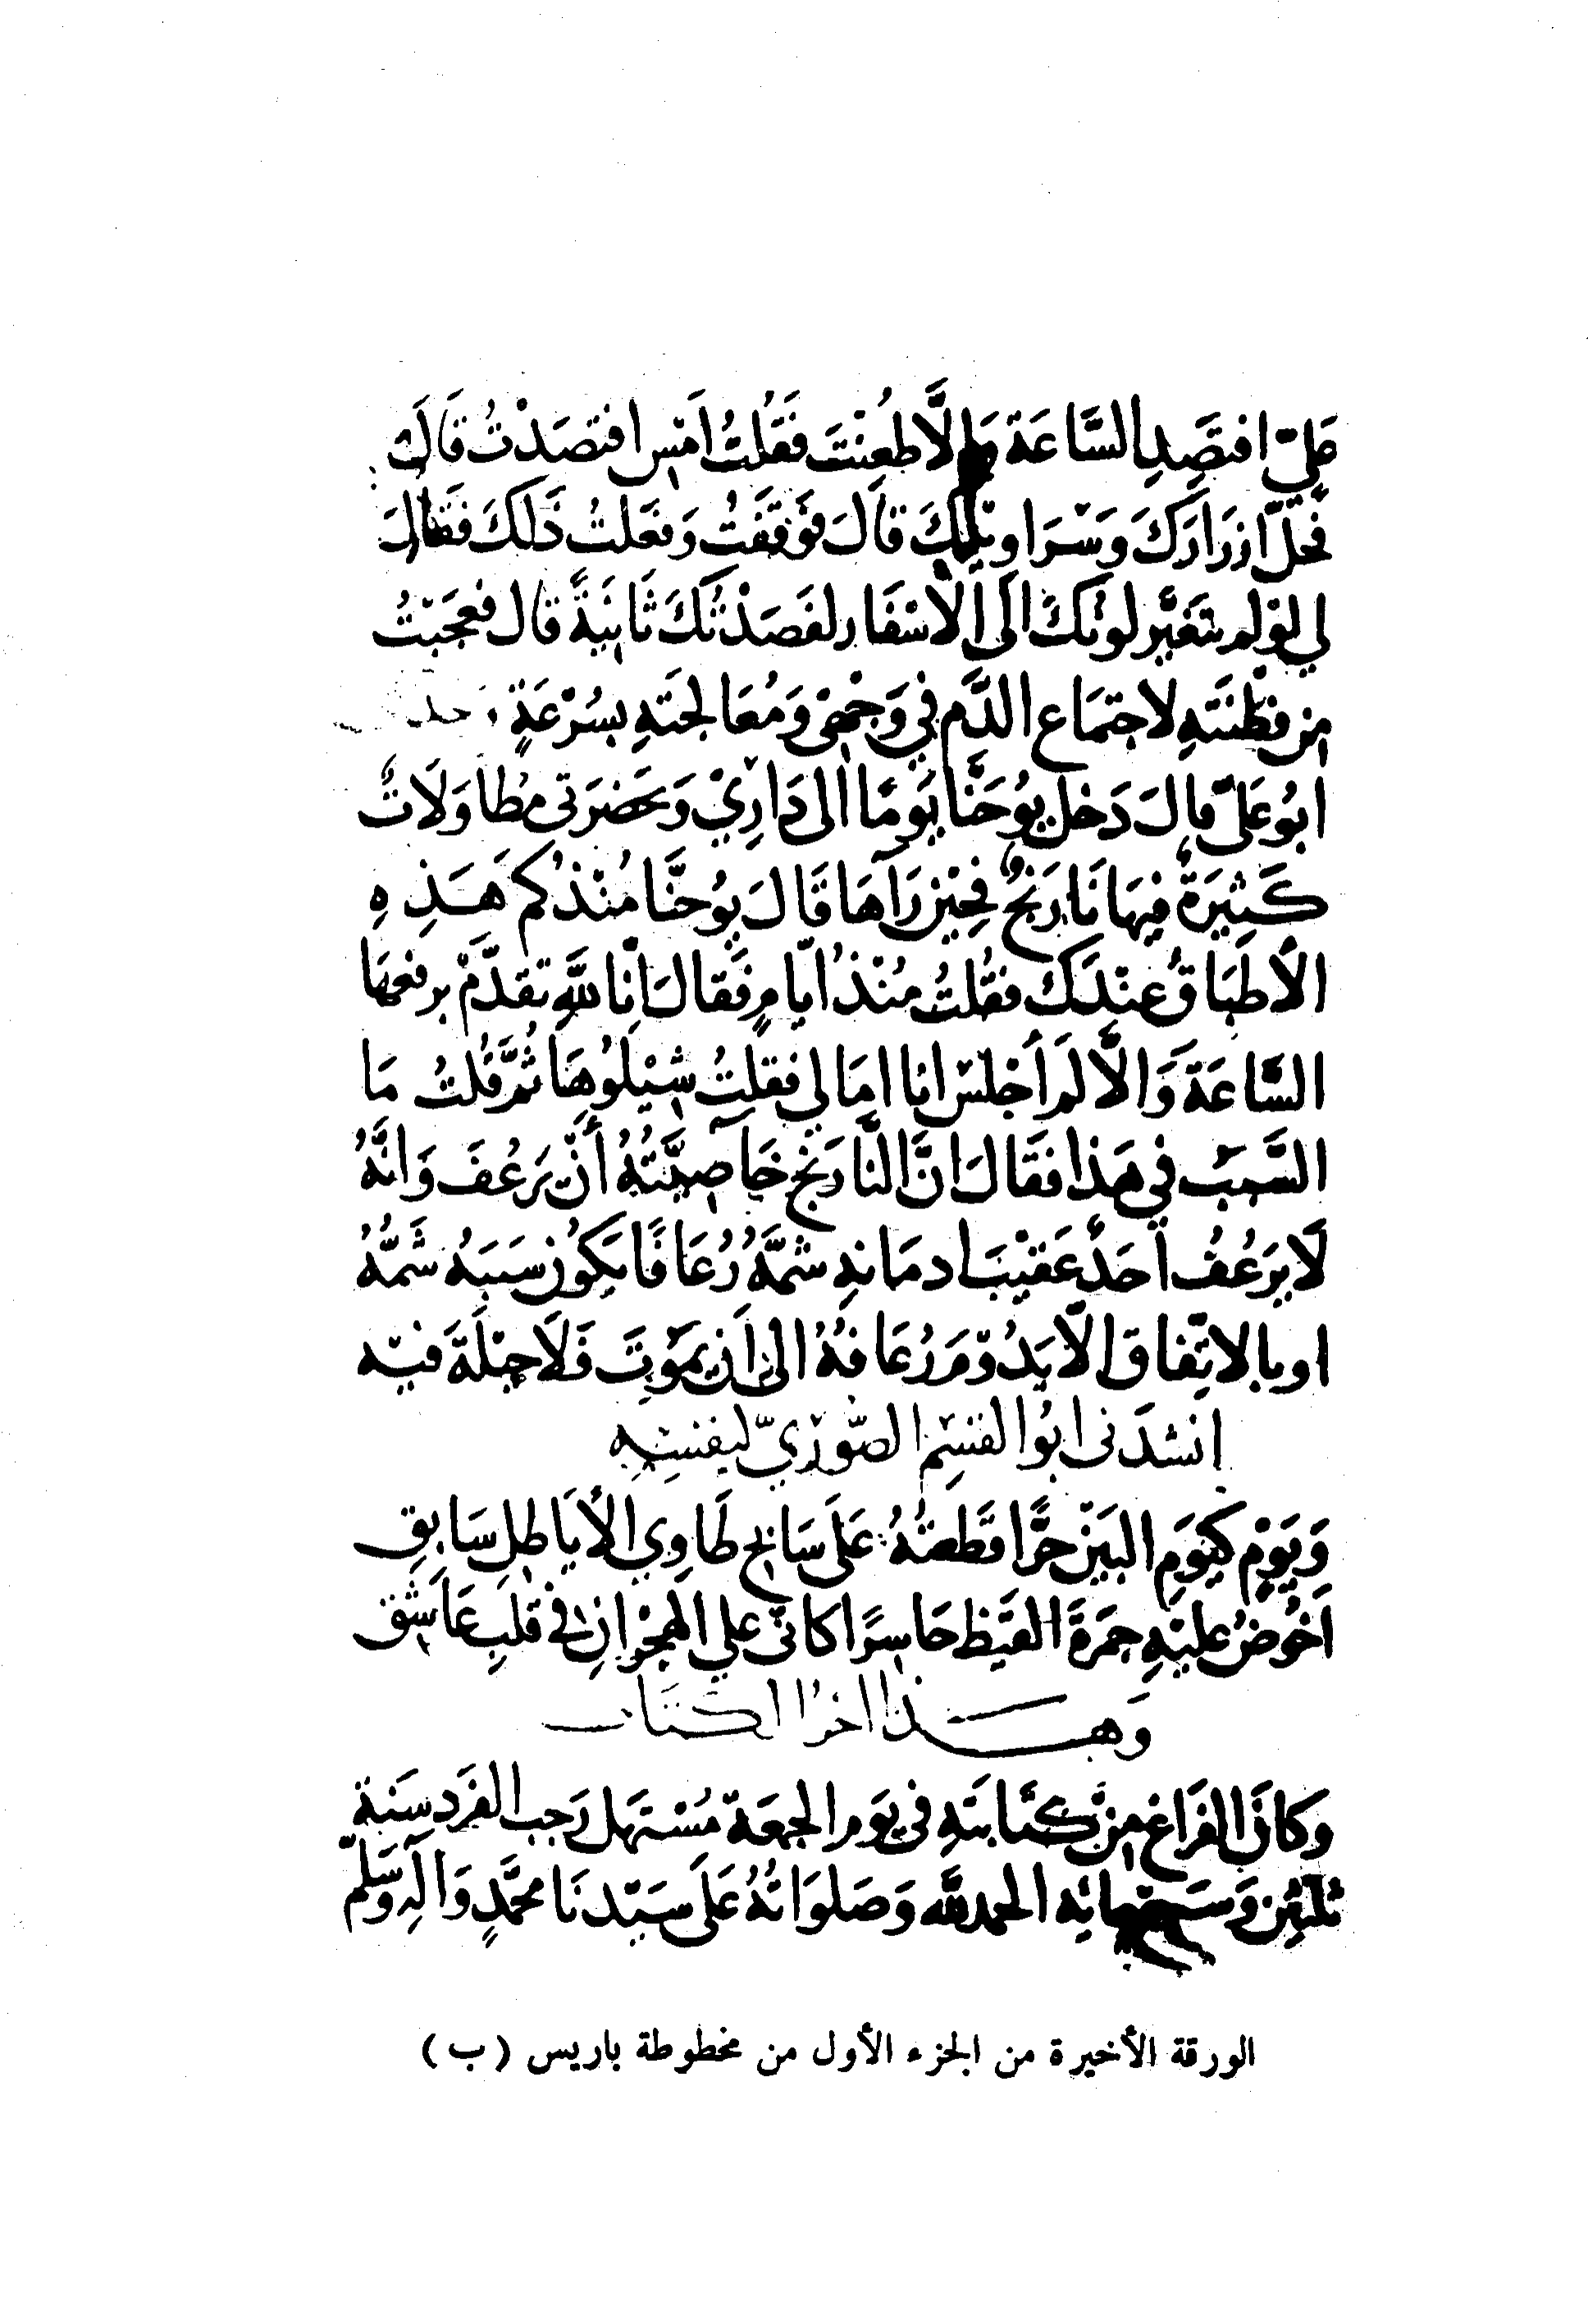 عَليّ افتصِدِ السَّاعَة وإلَّا طُعِنْتَ فَقُلتُ اَمْسِ افتصَدْتُ قَالَ
فحُلّ ازرَارَكَ وَسَرَاوِيْلكَ قالَ فَوَقَفتُ وَفعَلتُ ذَلكَ فقَالَ
لي لوْ لم يتَغَيَّر لونُكَ الَى الاْسْفَار لفَصَدْتُكَ ثَانِيَةً قال فعَجَبْتُ
مِن فِطْنَتِهِ لاجتِمَاع الدَّم في وَجْهي وَمُعَالجَتهِ بسُرْعَةٍ
ابُو عَليّ قالَ دَخل يوُحَنَّا يَومًا الى دَارِيْ وَبحَضرَتى مُطاوَلَاتٌ
كَثِيْرَةٌ فِيهَا نَارَنجٌ فحِيْن رَآهَا قَالَ يوُحَنَّا مُنْذ كم هَذِهِ
الأَطبَاقُ عنْدَكَ فقُلتُ مُنْذ ايّامٍ فَقالَ انّا للَّهِ تقدَّمْ برفعهَا
السَّاعَةَ وَالَّا لَم أَجْلسْ انا امَا لي فقلتُ شِيْلوُهَا ثُمَّ قُلتُ مَا
السَّبَبُ في هَذا فقَالَ انَّ النَّارَنج خَاصِيَّتُهُ أَنْ يَرعُفَ وَانَّهُ
لَا يَرعُفُ أَحَدٌ عَقيْبَ ادمَانهِ شمَّهُ رُعَافًا يَكوُن سَبَبَهُ شَمُّهُ
او بالاتّفاق الّا يَدُوْمَ رُعَافُهُ الى اَن يمَوُتَ فَلَا حِيْلَةَ فيْه
انشدَنى ابُو القسِمْ الصّوُرْيّ لنفسِهِ
وَيَوْمٍ كيَوَمِ البَيْن حَرًّا قطَعتُهُ عَلَى سَابحٍ طَاوِي الأَيَاطِلِ سَابقِ
اَخُوضُ عليْهِ جمَرَةَ القَيْظِ حَاسِرًا كانّى علي الهِجْرَانِ في قلبِ عَاشِق
وَهـــذا اخرُ الكتَاب
وَكانَ الفَرَاغ مِنْ كتَابتهِ في يَوم الجمعَة مُسْتهَل رَجب الفَرَد سَنَة
ثلثين وَسَبعمائه الحمد للَّه وَصَلوَاتُهُ عَلَى سَيّدنَا محمَّدٍ وَآلهِ وَسَلّم
الورقة الأخيرة من الجزء الأول من مخطوطة باريس (ب)